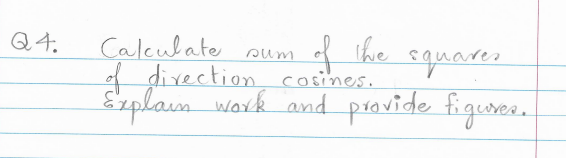 Q4. Calculate sum of the squares
of direction cosines.
Explain work and provide figures.